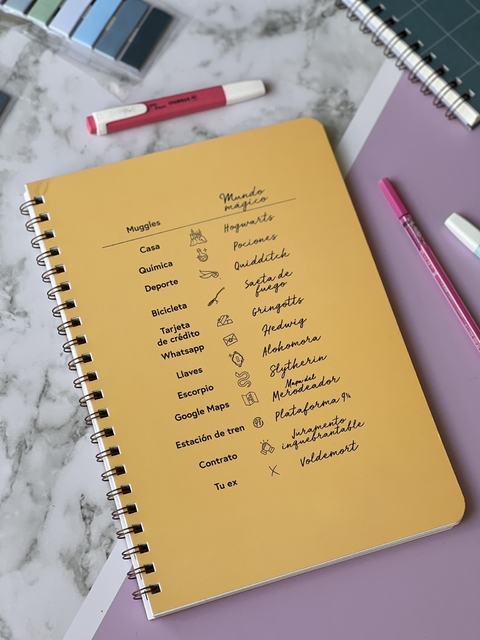 Muggles
Mundo
mágico
Casa
Hogwarts
Química
Pociones
Deporte
Quidditch
Bicicleta
Saeta de
fuego
Tarjeta
de crédito
Gringotts
Whatsapp
Hedwig
Llaves
Alohomora
Escorpio
Slytherin
Google Maps
Mapa del
Merodeador
Estación de tren
Plataforma 9¾
Contrato
Juramento
inquebrantable
Tu ex
Voldemort